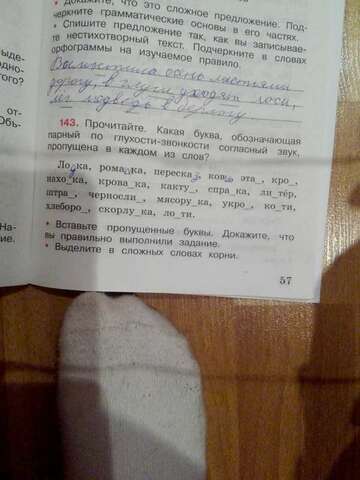 Докажите, что это сложное предложение. Под-
черкните грамматические основы в его частях.
• Спишите предложение так, как вы записывае-
те нестихотворный текст. Подчеркните в словах
орфограммы на изученное правило.
дорогу, в глуши уходят лоси,
медведь в берлогу
143. Прочитайте. Какая буква, обозначающая
парный по глухости-звонкости согласный звук,
пропущена в каждом из слов?
Ло_ка, рома_ка, переска_, ко_ эта_, кро_,
нахо_ка, крова_ка, какту_, спра_ка, ли_тёр,
штра_, черносли_, мясору_ка, укро_, ко_ти,
хлеборо_, скорлу_ка, ло_ти.
• Вставьте пропущенные буквы. Докажите, что
вы правильно выполнили задание.
• Выделите в сложных словах корни.
57
ыде-
одно-
того?
от-
Объ-
На-
ие.